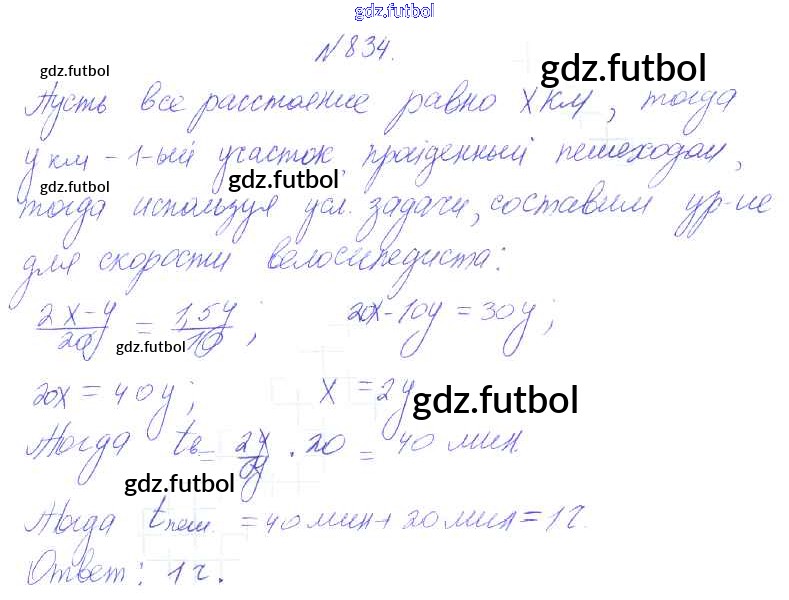 gdz.futbol
N 834.
gdz.futbol
gdz.futbol
Пусть все расстояние равно x км, тогда
y км - 1-ый участок, пройденный пешеходом,
gdz.futbol
gdz.futbol
тогда используя усл. задачи, составим ур-ие
для скорости велосипедиста:
2x-y = 1,5y ; 20x-10y = 30y;
20 10
gdz.futbol
20x = 40y; x = 2y
gdz.futbol
Тогда tв = 2y/y · 20 = 40 мин.
gdz.futbol
Тогда tпеш. = 40 мин + 20 мин = 1 ч.
Ответ: 1 ч.